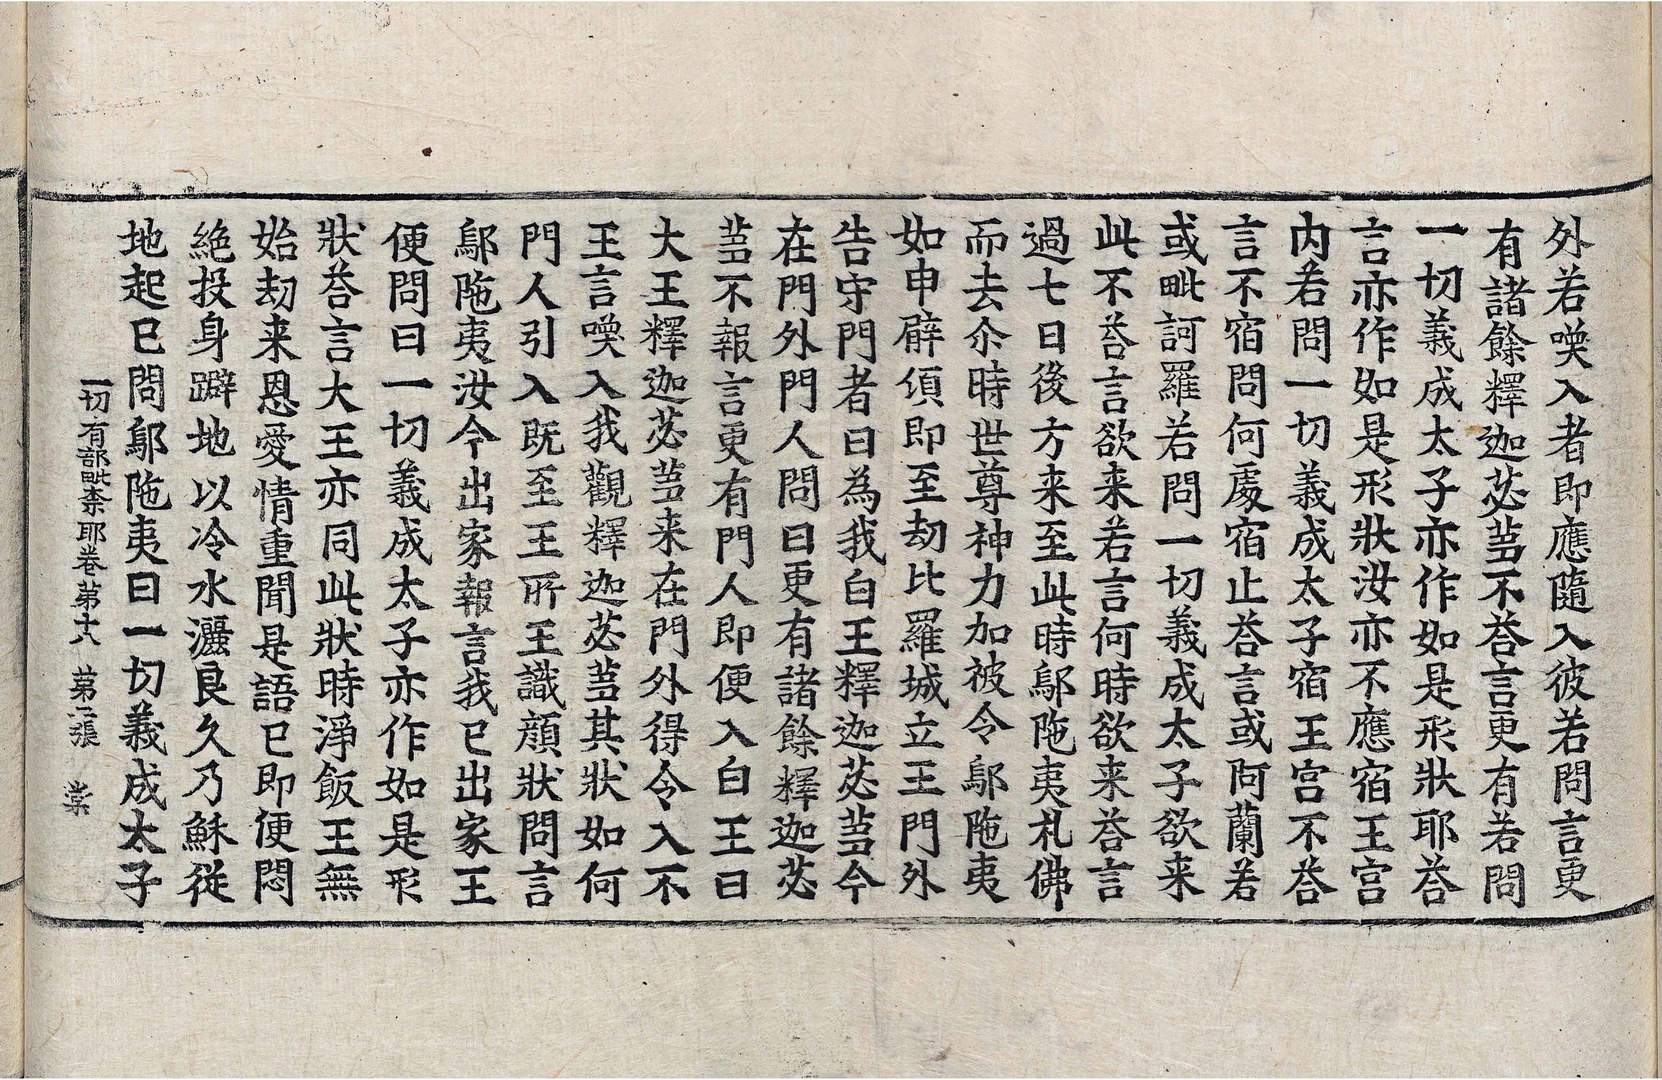 外若喚入者即應隨入彼若問言更
有諸餘釋迦苾芻不荅言更有若問
一切義成太子亦作如是形狀耶荅
言亦作如是形狀汝亦不應宿王宫
内若問一切義成太子宿王宫不荅
言不宿問何處宿止荅言或阿蘭若
或毗訶羅若問一切義成太子欲来
此不荅言欲来若言何時欲来荅言
過七日後方来至此時鄔陁夷札佛
而去尒時世尊神力加被令鄔陁夷
如申臂頃即至劫比羅城立王門外
告守門者曰為我白王釋迦苾芻今
在門外門人問曰更有諸餘釋迦苾
芻不報言更有門人即便入白王曰
大王釋迦苾芻来在門外得令入不
王言喚入我觀釋迦苾芻其狀如何
門人引入既至王所王識顔狀問言
鄔陁夷汝今出家報言我已出家王
便問曰一切義成太子亦作如是形
狀荅言大王亦同此狀時淨飯王無
始劫来恩愛情重聞是語已即便悶
絶投身躃地以冷水灑良久乃穌従
地起已問鄔陁夷曰一切義成太子
一切有部毗柰耶卷第十八 第二張 棠